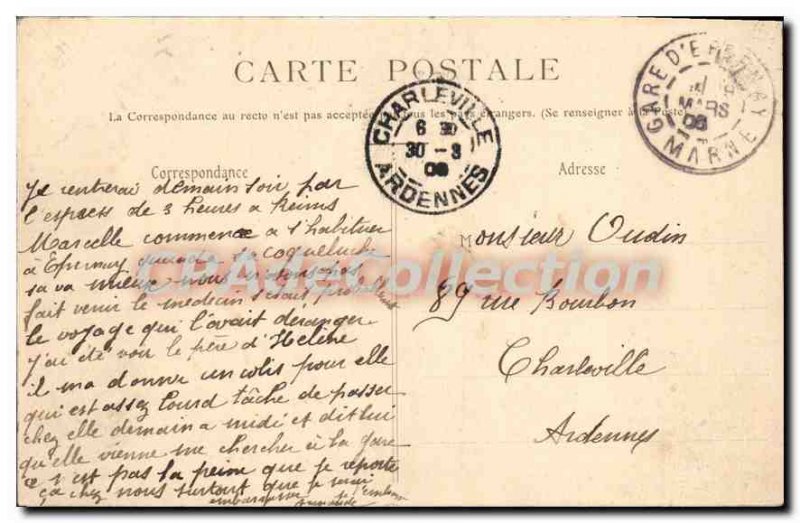 CARTE POSTALE
La Correspondance au recto n'est pas acceptée tous les pays étrangers. (Se renseigner à la Poste
CHARLEVILLE
6 30
30 - 3
06
ARDENNES
GARE D'EPERNAY
MARS
06
MARNE
Correspondance
Adresse
Je rentrerai demain soir par
l'express de 3 heures a Reims
Marcelle commence a s'habituer
à Epernay sa coqueluche
sa va mieux nous
fait venir le medecin
le voyage qui l'avait déranger
j'ai été voir le père d'Helène
il m'a donner un colis pour elle
qui est assez lourd tâche de passer
chez elle demain a midi et dit lui
qu'elle vienne me chercher à la gare
ce n'est pas la peine que je reporte
ça chez nous surtout que je serai
embarrassé
Monsieur Oudin
89 rue Bourbon
Charleville
Ardennes
CPADeCollection